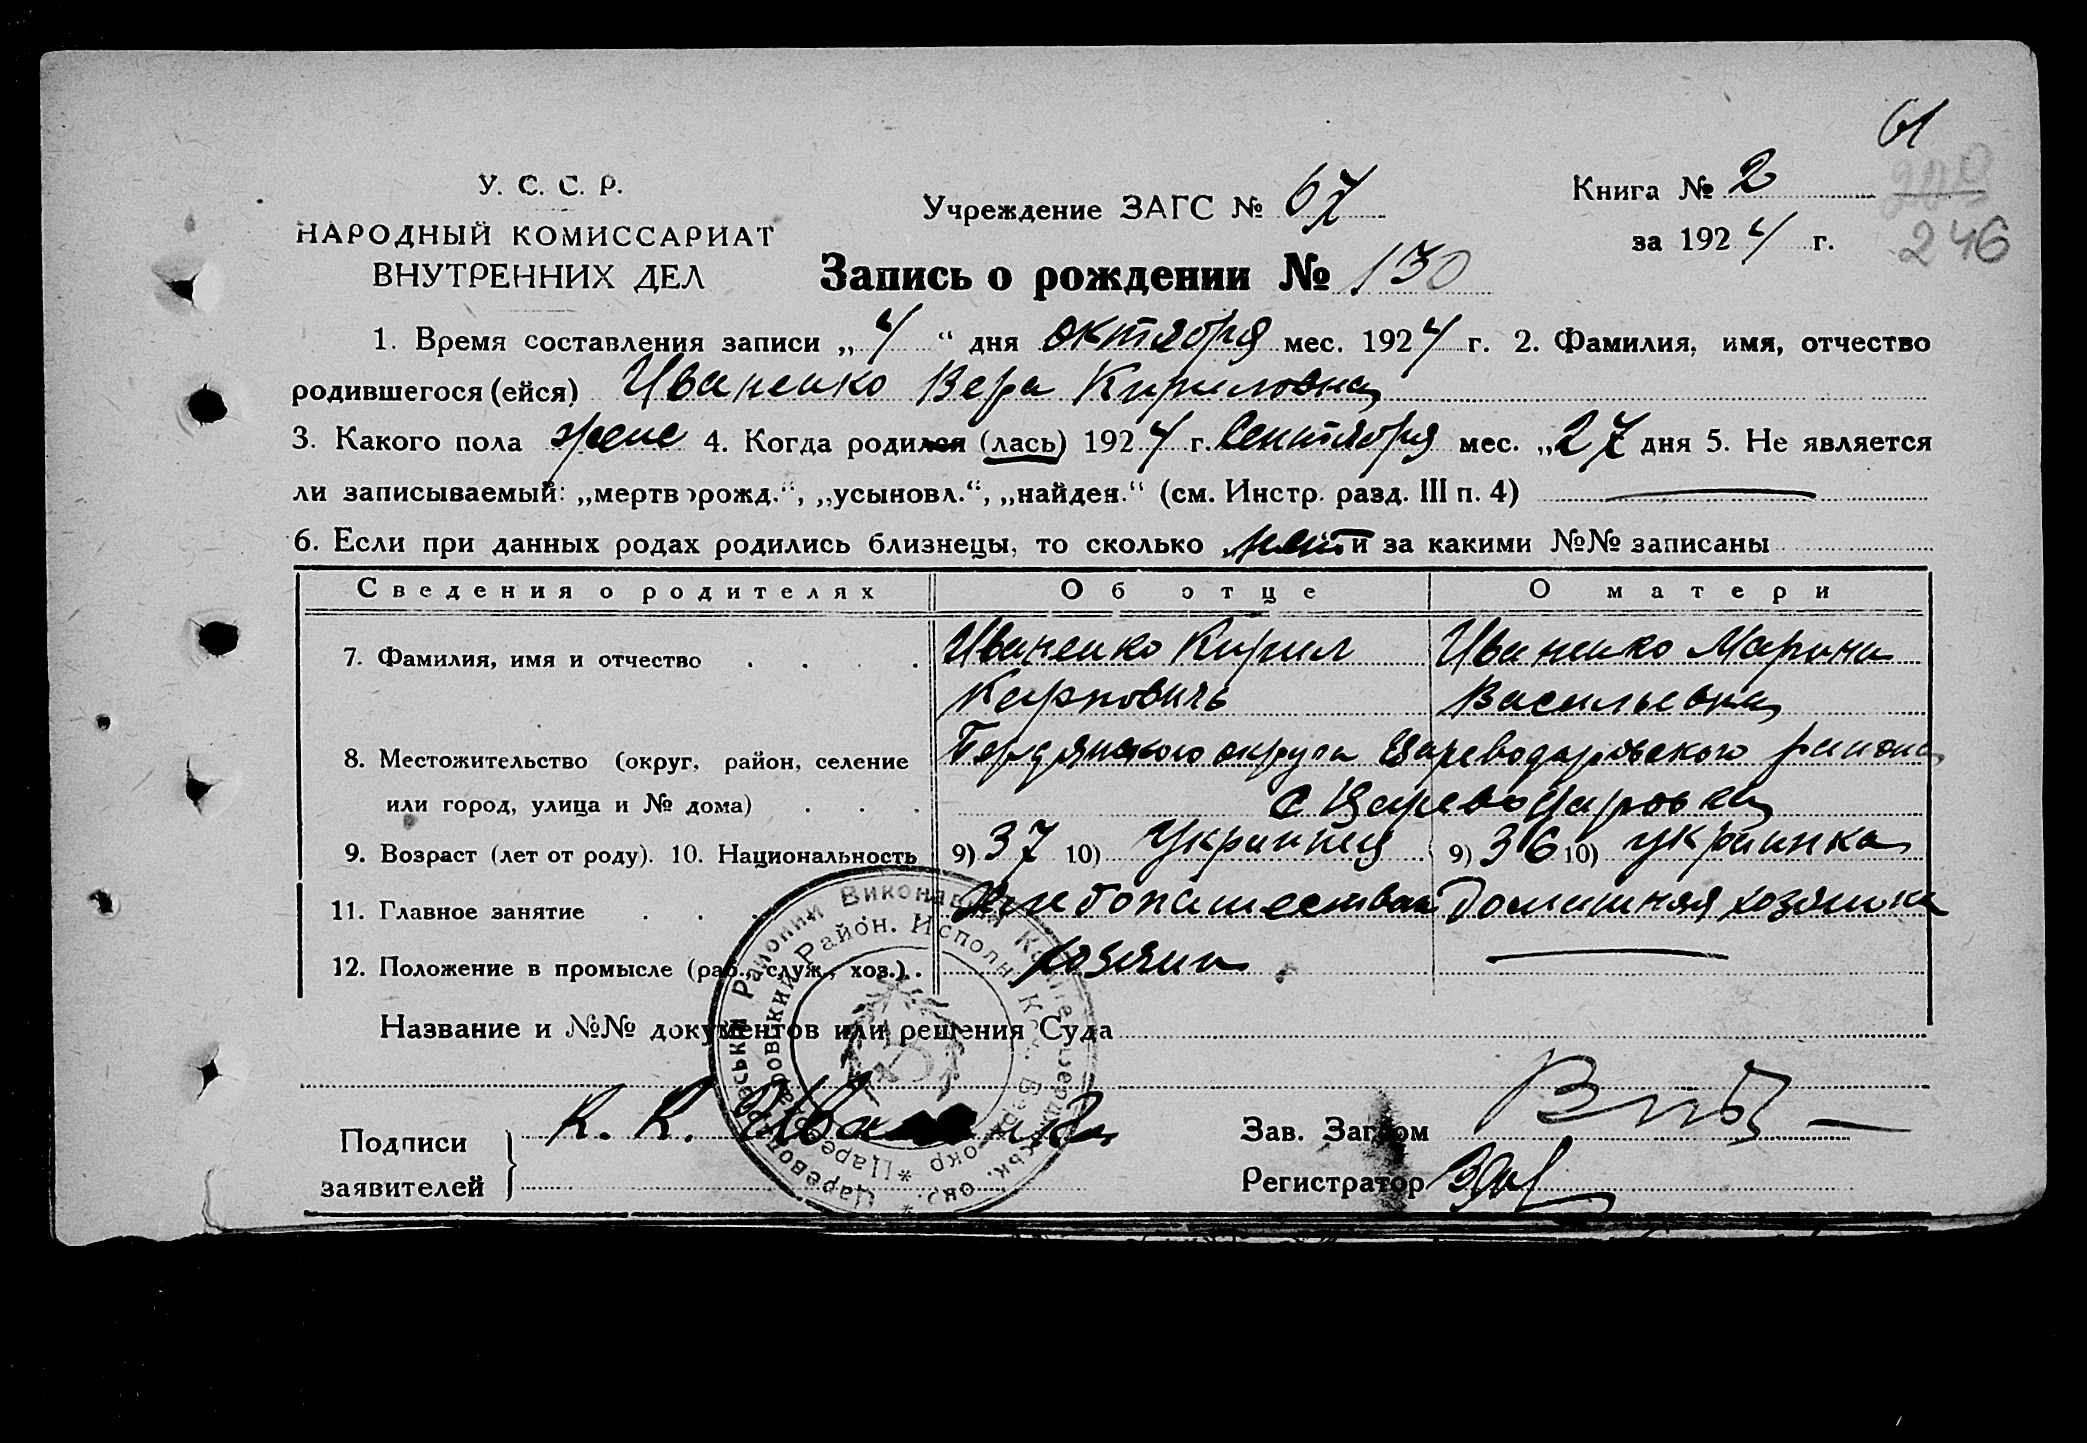 61
У. С. С. Р.
НАРОДНЫЙ КОМИССАРИАТ
ВНУТРЕННИХ ДЕЛ
Учреждение ЗАГС № 67
Книга № 2
за 1924 г.
246
Запись о рождении № 130
1. Время составления записи „4“ дня октября мес. 1924 г. 2. Фамилия, имя, отчество
родившегося (ейся) Иваненко Вера Кириловна
3. Какого пола женс 4. Когда родился (лась) 1924 г. Сентября мес. „27 дня 5. Не является
ли записываемый: „мертворожд.“, „усыновл.“, „найден.“ (см. Инстр. разд. III п. 4)
6. Если при данных родах родились близнецы, то сколько нет и за какими №№ записаны
Сведения о родителях Об отце О матери
7. Фамилия, имя и отчество . . . . Иваненко Кирил Иваненко Марина
Карповичь Васильевна
8. Местожительство (округ, район, селение Бердянского округа Цареводаровского района
или город, улица и № дома) . . . с Цареводаровка
9. Возраст (лет от роду). 10. Национальность 9) 37 10) Украинец 9) 36 10) украинка
11. Главное занятие . . . Хлебопашество Домашняя хозяйка
12. Положение в промысле (раб., служ., хоз.). . хозяин
Название и №№ документов или решения Суда
Подписи
заявителей
К. К. Иваненко
Зав. Загсом
Регистратор